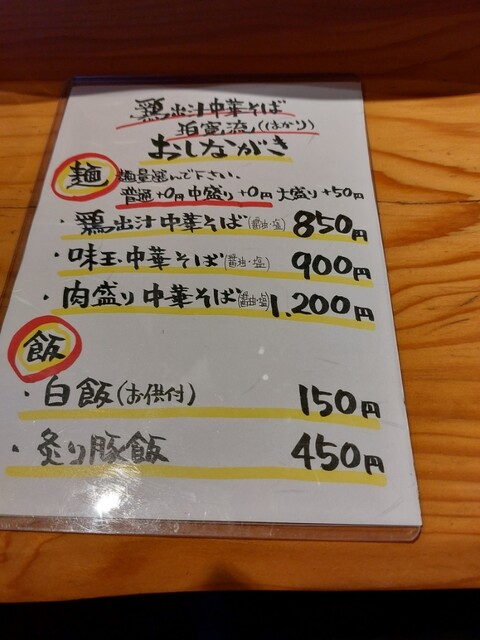 鶏出汁中華そば
(はかり)
おしながき
麺 麺量選んで下さい。
普通+0円 中盛り+0円 大盛り+50円
・鶏出汁中華そば(醤油・塩) 850円
・味玉中華そば(醤油・塩) 900円
・肉盛り中華そば(醤油・塩) 1,200円
飯
・白飯(お供付) 150円
・炙り豚飯 450円